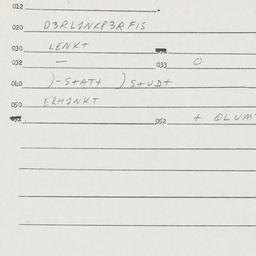 012
020 D3RL1NKP3RFIS
030 LENKT
032 — 033 O
040 )-STATT )STUDT
050 ERH1NKT
052 + OLUM